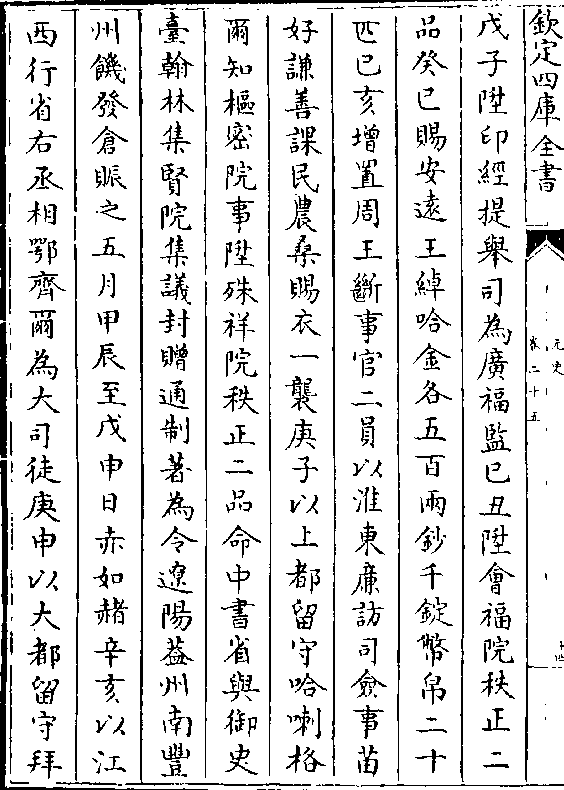 欽定四庫全書
元史
卷二十五
戊子陞印經提舉司為廣福監已丑陞會福院秩正二
品癸巳賜安遠王綽哈金各五百兩鈔千錠幣帛二十
匹己亥增置周王斷事官二員以淮東亷訪司僉事苗
好謙善課民農桑賜衣一襲庚子以上都留守哈喇格
爾知樞密院事陞殊祥院秩正二品命中書省與御史
臺翰林集賢院集議封贈通制著為令遼陽葢州南豐
州饑發倉賑之五月甲辰至戊申日赤如赭辛亥以江
西行省右丞相鄂齊爾為大司徒庚申以大都留守拜